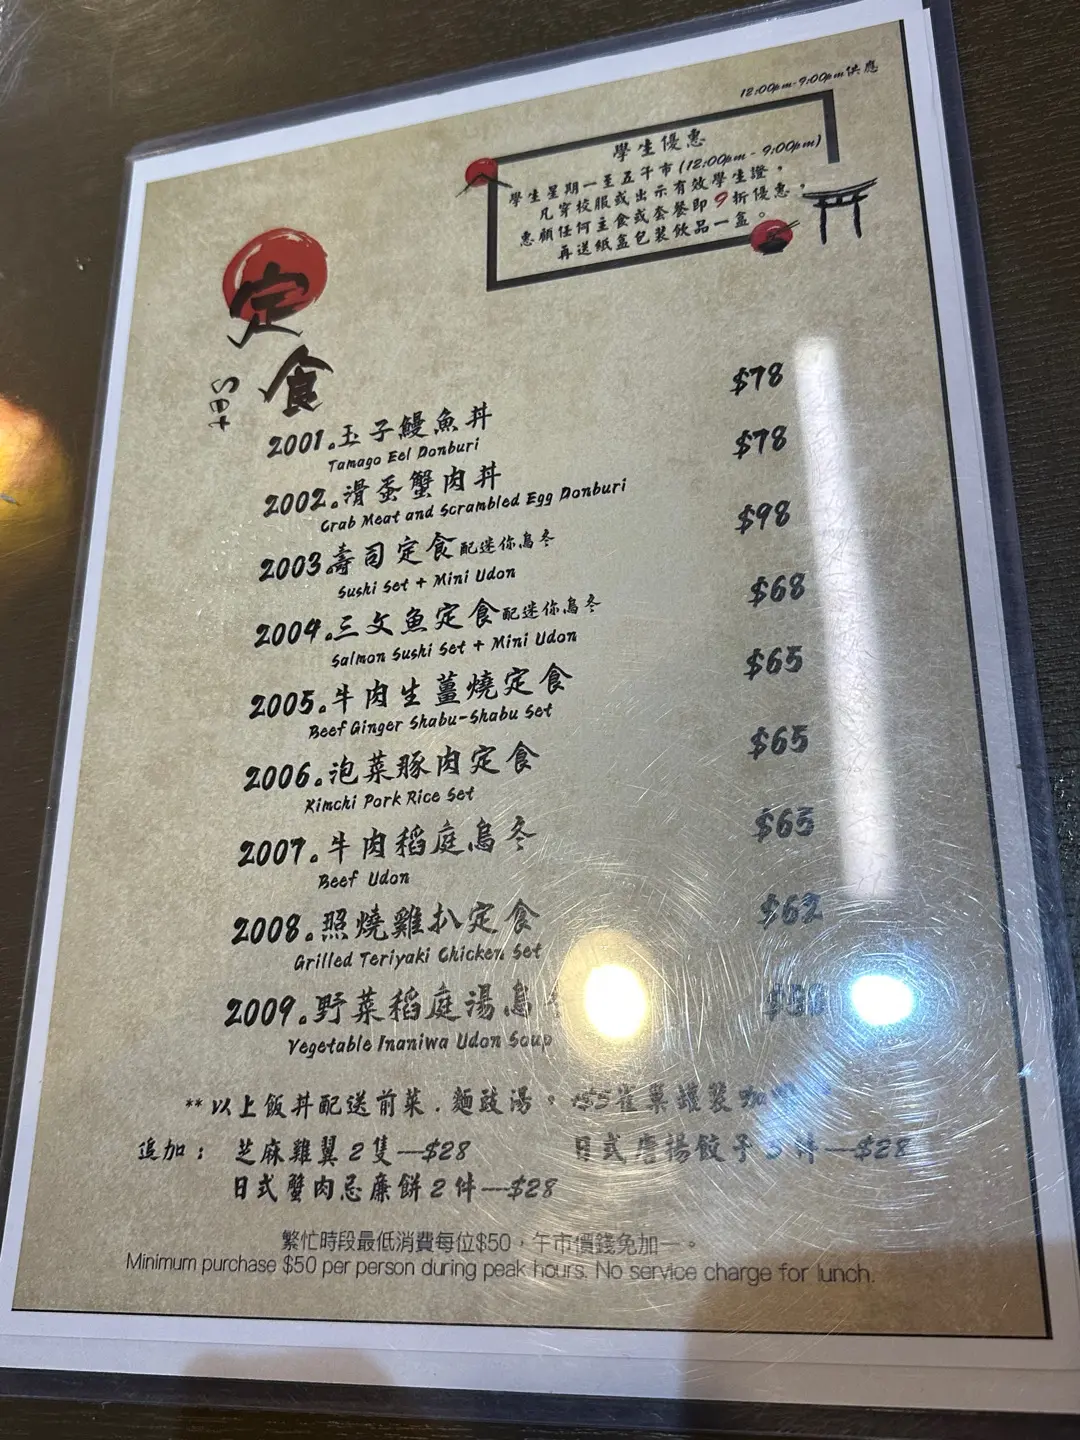 12:00pm-9:00pm供應
學生優惠
學生星期一至五午市(12:00pm - 9:00pm)
凡穿校服或出示有效學生證，
惠顧任何主食或套餐即9折優惠，
再送紙盒包裝飲品一盒。
定食
Set
2001.玉子鰻魚丼 $78
Tamago Eel Donburi
2002.滑蛋蟹肉丼 $78
Crab Meat and Scrambled Egg Donburi
2003.壽司定食配迷你烏冬 $98
Sushi Set + Mini Udon
2004.三文魚定食配迷你烏冬 $68
Salmon Sushi Set + Mini Udon
2005.牛肉生薑燒定食 $65
Beef Ginger Shabu-Shabu Set
2006.泡菜豚肉定食 $65
Kimchi Pork Rice Set
2007.牛肉稻庭烏冬 $65
Beef Udon
2008.照燒雞扒定食 $62
Grilled Teriyaki Chicken Set
2009.野菜稻庭湯烏
Vegetable Inaniwa Udon Soup
**以上飯丼配送前菜．麵豉湯。+$5雀巢罐裝咖
追加： 芝麻雞翼2隻—$28 日式唐揚餃子 件—$28
日式蟹肉忌廉餅2件—$28
繁忙時段最低消費每位$50，午市價錢免加一。
Minimum purchase $50 per person during peak hours. No service charge for lunch.